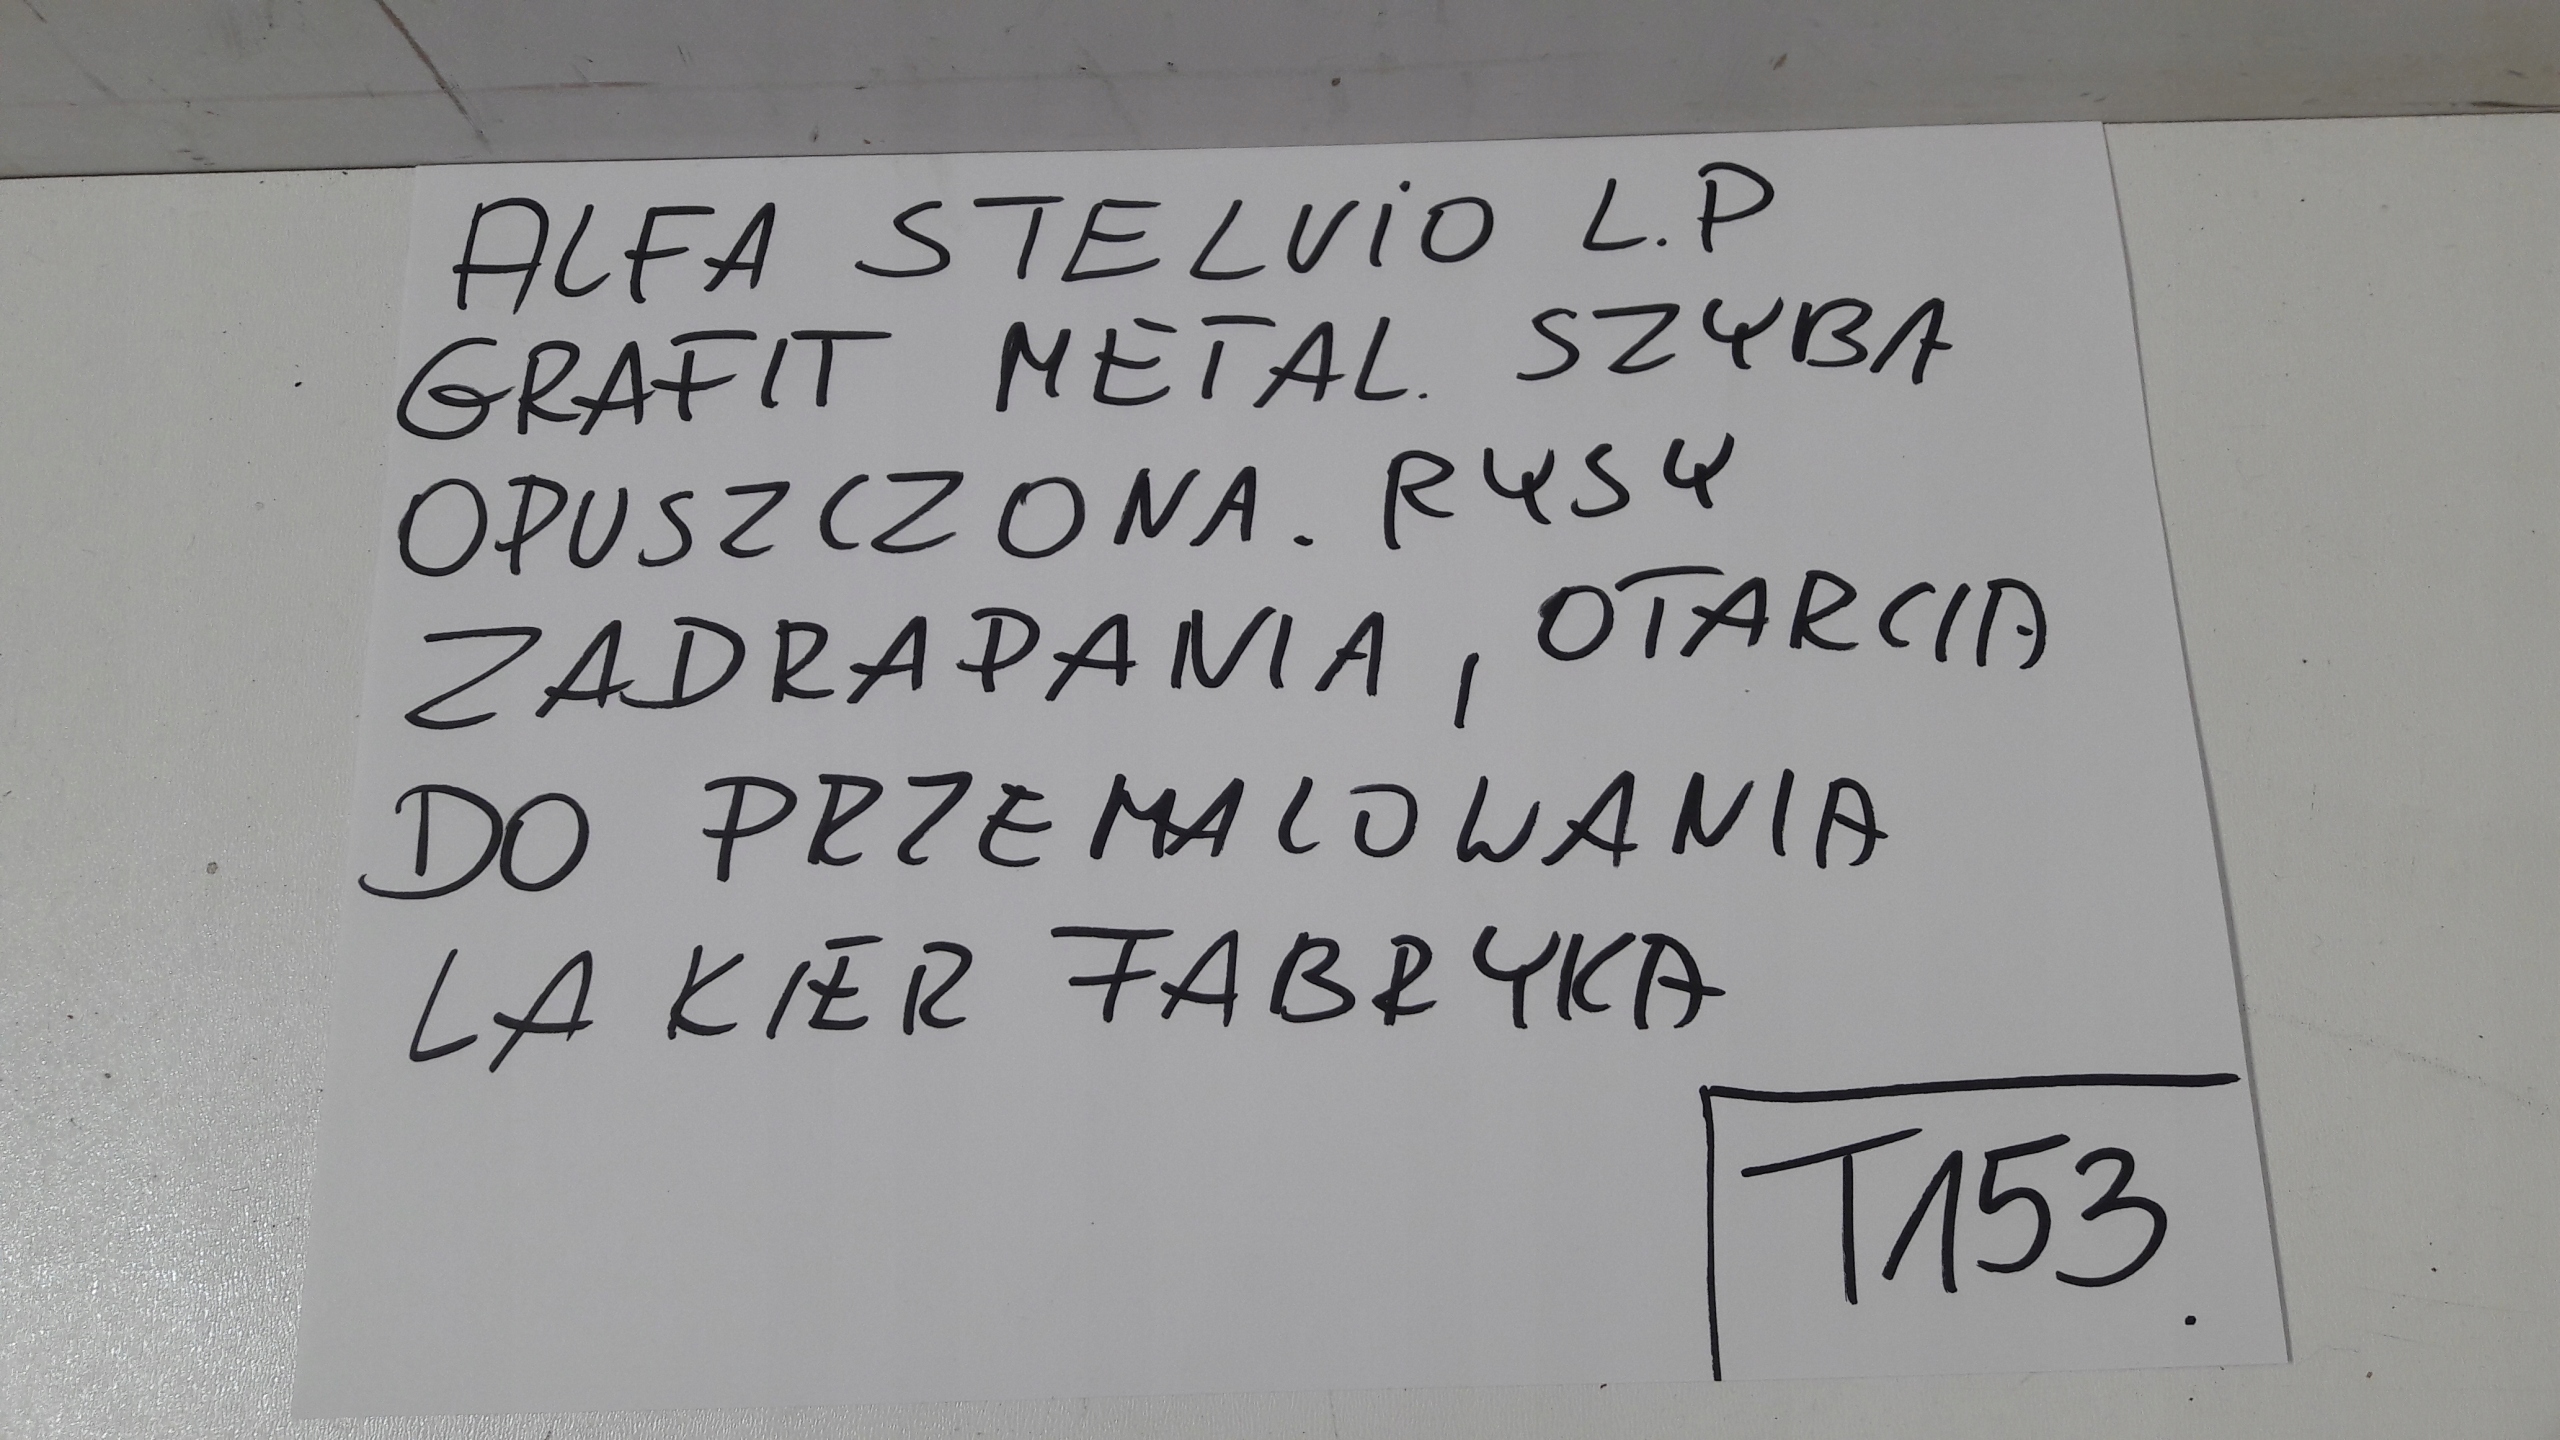 ALFA STELVIO L.P
GRAFIT METAL. SZYBA
OPUSZCZONA. RYSY
ZADRAPANIA, OTARCIA
DO PRZEMALOWANIA
LAKIER FABRYKA
T153.